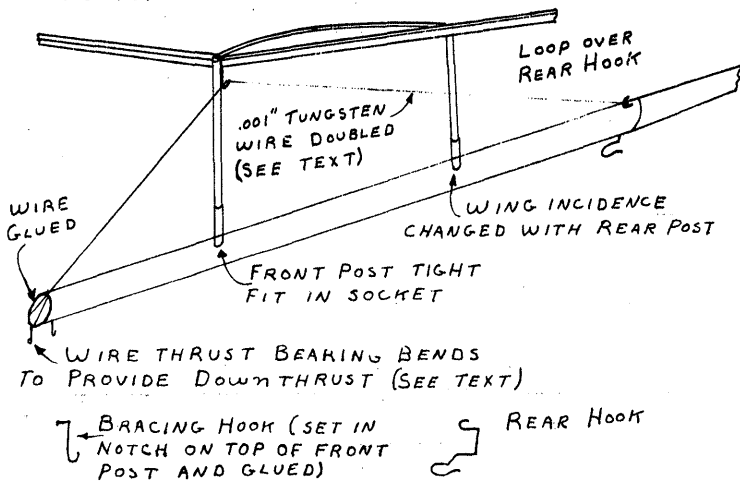 LOOP OVER
REAR HOOK
.001" TUNGSTEN
WIRE DOUBLED
(SEE TEXT)
WIRE
GLUED
WING INCIDENCE
CHANGED WITH REAR POST
FRONT POST TIGHT
FIT IN SOCKET
WIRE THRUST BEARING BENDS
TO PROVIDE DOWNTHRUST (SEE TEXT)
BRACING HOOK (SET IN
NOTCH ON TOP OF FRONT
POST AND GLUED)
REAR HOOK